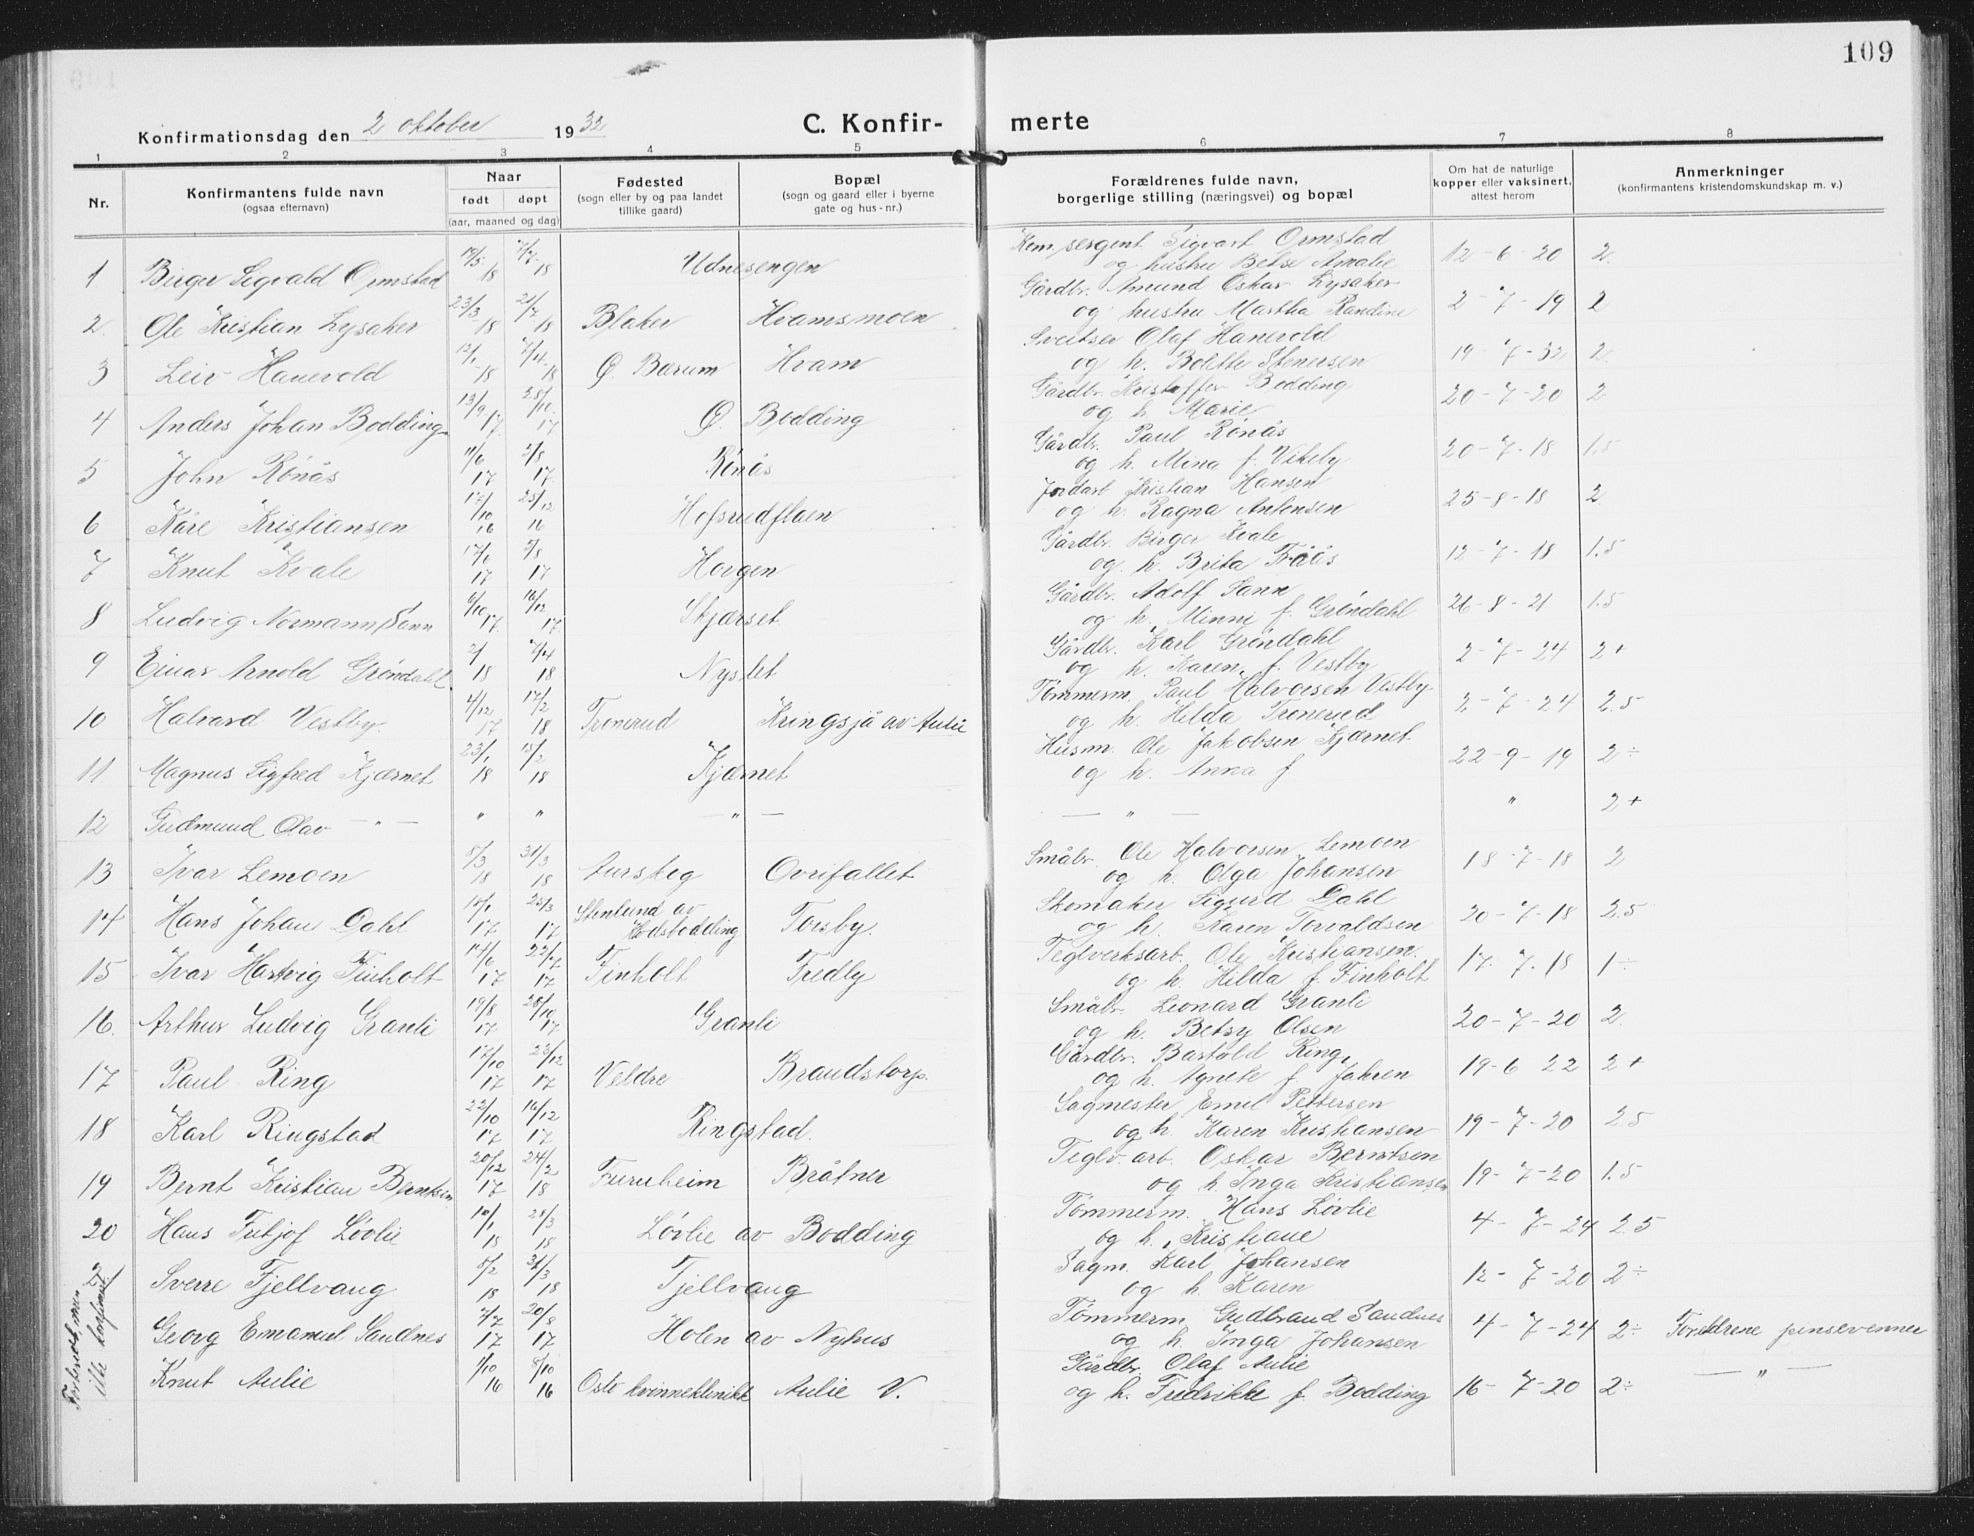 109
Konfirmationsdag den 2 oktober 1932
C. Konfirmerte
1 2 3 4 5 6 7 8
Nr.
Konfirmantens fulde navn
(ogsaa efternavn)
Naar
født døpt
(aar, maaned og dag)
Fødested
(sogn eller by og paa landet
tillike gaard)
Bopæl
(sogn og gaard eller i byerne
gate og hus-nr.)
Forældrenes fulde navn,
borgerlige stilling (næringsvei) og bopæl
Om hat de naturlige
kopper eller vaksinert,
attest herom
Anmerkninger
(konfirmantens kristendomskundskap m. v.)
1 Birger Sigvald Ormstad 18 18 Udnesengen Sigvart Ormstad 12-6-20 2.
og hustru Betse Amalie
2. Ole Kristian Lysaker 23/3 18 21/7 18 Blaker Hvamsmoen Gårdbr. Amund Oskar Lysaker 2-7-19 2
og hustru Martha Randine
3 Leiv Hanevold 12/1 18 18 Ø. Bærum Hvam Sveitser Olaf Hanevold 19-7-32 2.
og h. Bolette Stenersen
4 Anders Johan Bodding 13/9 17. 28/10 17 Ø. Bodding Gårdbr. Kristoffer Bodding 20-7-20 2
og h. Marie
5 John Rönås 11/6 17 5/8 17 Rönås Gårdbr. Paul Rönås 20-7-18 1.5
og h. Mina f. Vikeby
6 Kåre Kristiansen 17/10 16 25/12 16 Hofsrudfloen Jordarb. Kristian Hansen 25-8-18 2
og h. Ragna Antonsen
7 Knut Kvale 17/6 17 5/8 17 Horgen Gårdbr. Birger Kvale 12-7-18 1.5
og. h. Brita Tråås
8 Ludvig Normann Sann 6/10 17. 16/12 17. Skjærset Gårdbr. Adolf Sann 26-8-21 1.5
og h. Minni f. Gröndahl
9 Einar Arnold Gröndahl 18 7/4 18 Nyslet Gårdbr. Karl Gröndahl 2-7-24 2+
og h. Karen, f. Vestby
10 Halvard Vestby. 4/12 17 17/2 18 Tronerud Kringsjå av Aulie Tömmerm. Paul Halvorsen Vestby 2-7-24 2.5
og h. Hilda Tronerud
11 Magnus Sigfred Kjærnet 23/1 18 15/2 18 Kjærnet Husm. Ole Jakobsen Kjærnet 22-9-19 2÷
og h. Anna f
12 Gudmund Olav — " — " " — " — — " — " 2+
13 Ivar Lemoen 8/3 18 31/3 18 Aursteg Ovrifallet Småbr. Ole Halvorsen Lemoen 18-7-18 2
og h. Olga Johansen
14 Hans Johan Dahl 17 25/3 17 Stenlund av Torsby. Skomaker Sigurd Dahl 20-7-18 2.5
Hodsbodding og h. Karen Torvaldsen
15 Ivar Hartvig Finholt 17 22/7 17 Finholt Fredly Teglverksarb. Ole Kristiansen 17-7-18 1÷
og h. Hilda f. Finholt
16. Arthur Ludvig Granli 19/8 17 28/10 17 Granli Småbr. Leonard Granli 20-7-20 2.
og h. Betzy Olsen
17 Paul Ring 17/10 17 23/12 17 Veldre Brandstorp. Gårdbr. Bartold Ring, 19-6 22 2+
og h. Agnete f. Jahren
18 Karl Ringstad 22/10 17 16/12 17 Ringstad. Sagmester Emil Pettersen 19-7-20 2.5
og h. Karen Kristiansen
19 Bernt Kristian Berntsen 20/12 17 24/2 18 Furuheim Bråtner Teglv.arb. Oskar Berntsen 19-7-20 1.5
og h. Inga Kristiansen
20 Hans Fritjof Lövlie 10/1 18 28/3 18 Lövlie av Bodding Tömmerm. Hans Lövlie 4-7-24 2.5
og h. Kristiane
Sverre Fjellvang 5/2 18 31/3 18 Fjellvang Sagm. Karl Johansen 12-7-20 2÷
og h Karen
Forberedt men
ikke konfirmert
Georg Emanuel Sandnes 7/7 17 20/8 17 Holen av Nyhus Tömmerm. Gudbrand Sandnes 4-7-24 2÷ Foreldrene pinsevenner
og h. Inga Johansen
Knut Aulie 1/10 16 8/10 16 Oslo kvinneklinikk Aulie V. Gårdbr. Olaf Aulie 16-7-20 2÷ — " —
og h. Fredrikke f. Bodding